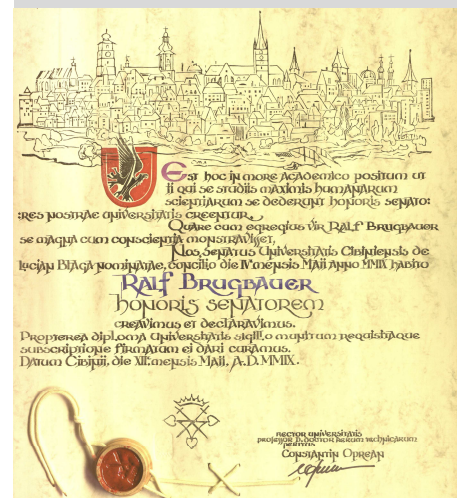 Est hoc in more academico positum ut
ii qui se studiis maximis humanarum
scientiarum se dederunt honoris senato:
:res nostrae universitatis creentur.
Quare cum egregius vir Ralf Brugbauer
se magna cum conscientia monstravisset,
Nos, senatus Universitatis Cibiniensis de
Lucian Blaga nominatae, concilio die IV mensis Maii anno MMIX habito
Ralf Brugbauer
honoris senatorem
creavimus et declaravimus.
Propterea diploma Universitatis sigillo munitum requisitaque
subscriptione firmatum ei dari curamus.
Datum Cibinii, die XII mensis Maii, A.D. MMIX.
Rector Universitatis
Professor D. Doctor Rerum Technicarum
Peritus
Constantin Oprean